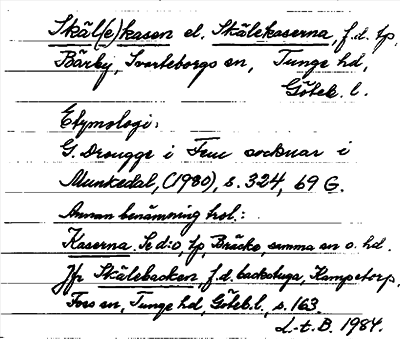 Skäl(e)kasen el. Skälekaserna, f.d. tp,
Bärby, Svarteborgs sn, Tunge hd,
Göteb. l.
Etymologi:
G. Drougge i Fem socknar i
Munkedal, (1980), s. 324, 69 G.
Annan benämning trol.:
Kaserna. Se d:o, tp, Bräcke, samma sn o. hd.
Jfr Skälebacken f.d. backstuga, Kampetorp,
Foss sn, Tunge hd, Göteb. l., s. 163.
L-t. B. 1984.